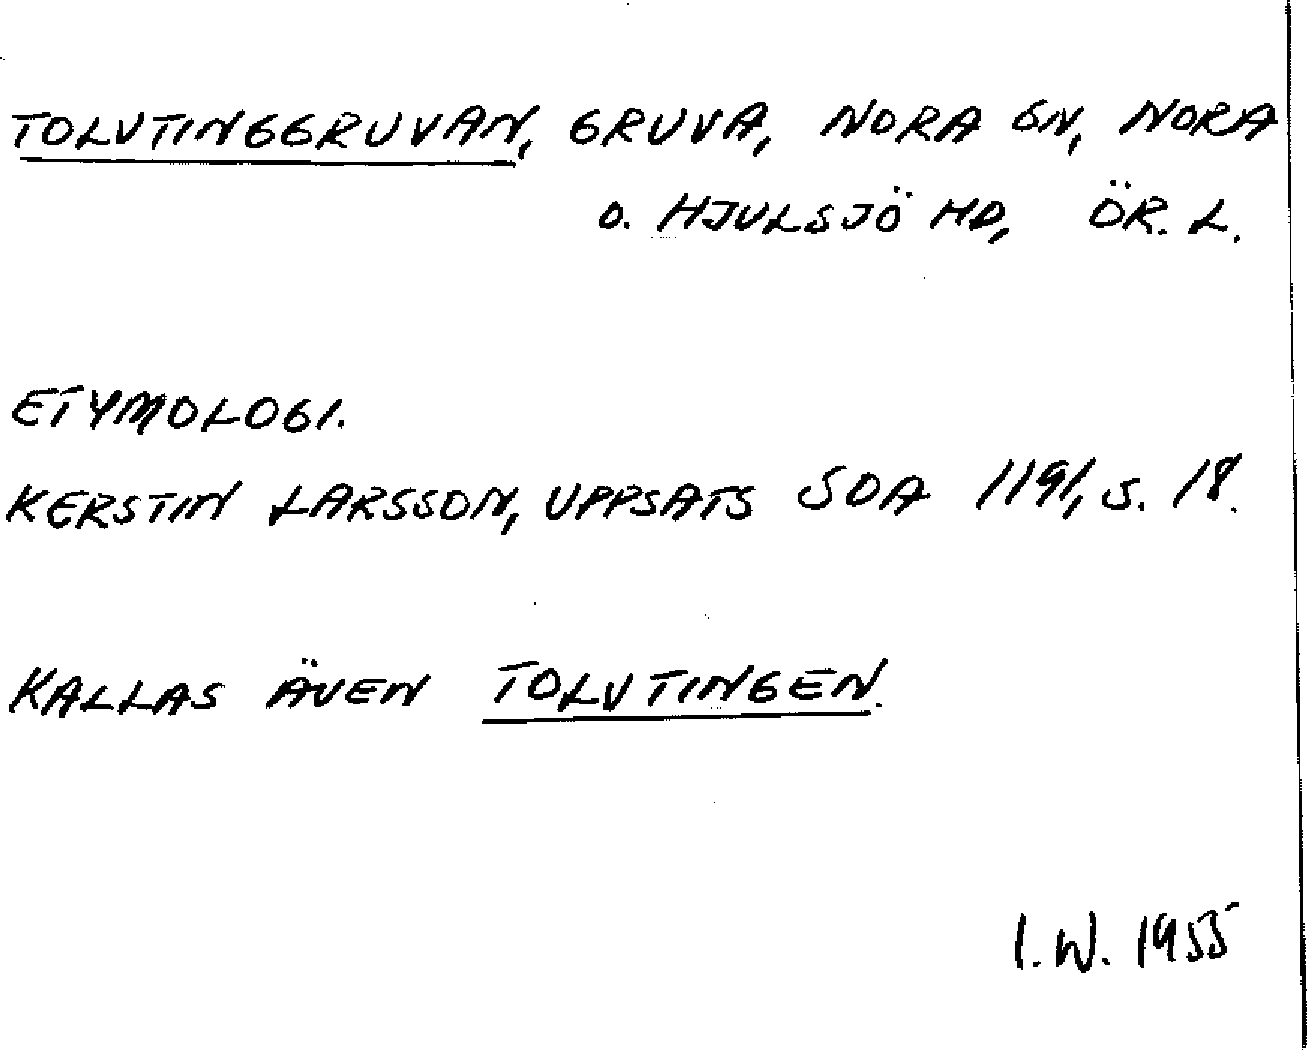 TOLVTINGGRUVAN, GRUVA, NORA SN, NORA
O. HJULSJÖ HD, ÖR. L.
ETYMOLOGI.
KERSTIN LARSSON, UPPSATS SOA 1191, S. 18.
KALLAS ÄVEN TOLVTINGEN.
I. W. 1955